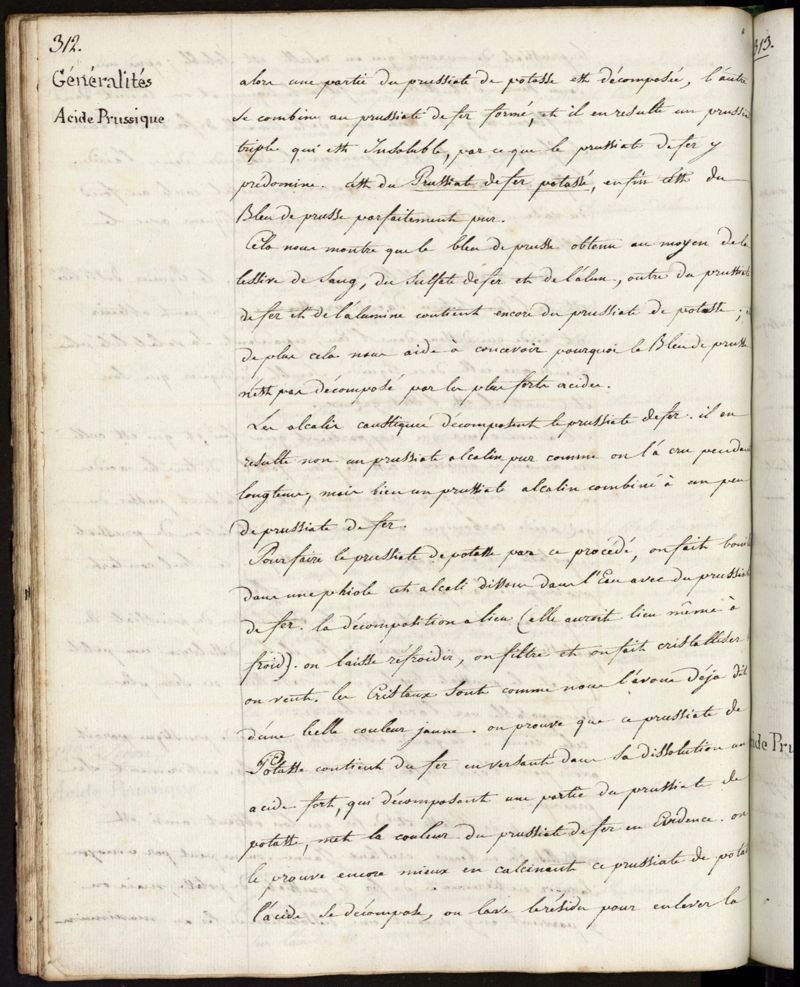 312.
Généralités
Acide Prussique
alors une partie du prussiate de potasse est décomposée, l'autre
se combine au prussiate de fer formé, et il en resulte un prussia
triple qui est Insoluble, par ce que le prussiate de fer y
prédomine. c'est du Prussiate de fer potassé, enfin c'est du
Bleu de prusse parfaitement pur.
Cela nous montre que le bleu de prusse obtenu au moyen de la
lessive de Sang, du Sulfate de fer et de l'alun, outre du prussiate
de fer et de l'alumine contient encore du prussiate de potasse ;
de plus cela nous aide à concevoir pourquoi le Bleu de prusse
n'est pas décomposé par les plus forts acides.
Les alcalis caustiques décomposent le prussiate de fer. il en
resulte non un prussiate alcalin pur comme on l'a cru pendant
longtems, mais bien un prussiate alcalin combiné à un peu
de prussiate de fer.
Pour faire le prussiate de potasse par ce procédé, on fait bouil
dans une phiole cet alcali dissous dans l'Eau avec du prussiate
de fer. la décomposition a lieu (elle auroit lieu même à
froid). on laisse réfroidir, on filtre et on fait cristalliser
on veut. les Cristaux sont comme nous l'avons déja dit
d'une belle couleur jaune. on prouve que ce prussiate de
Potasse contient du fer en versant dans sa dissolution un
acide fort, qui décomposant une partie du prussiate de
potasse, met la couleur du prussiate de fer en Evidence. on
le prouve encore mieux en calcinant ce prussiate de potas
l'acide se décompose, on lave le résidu pour enlever la
313.
ide Pru